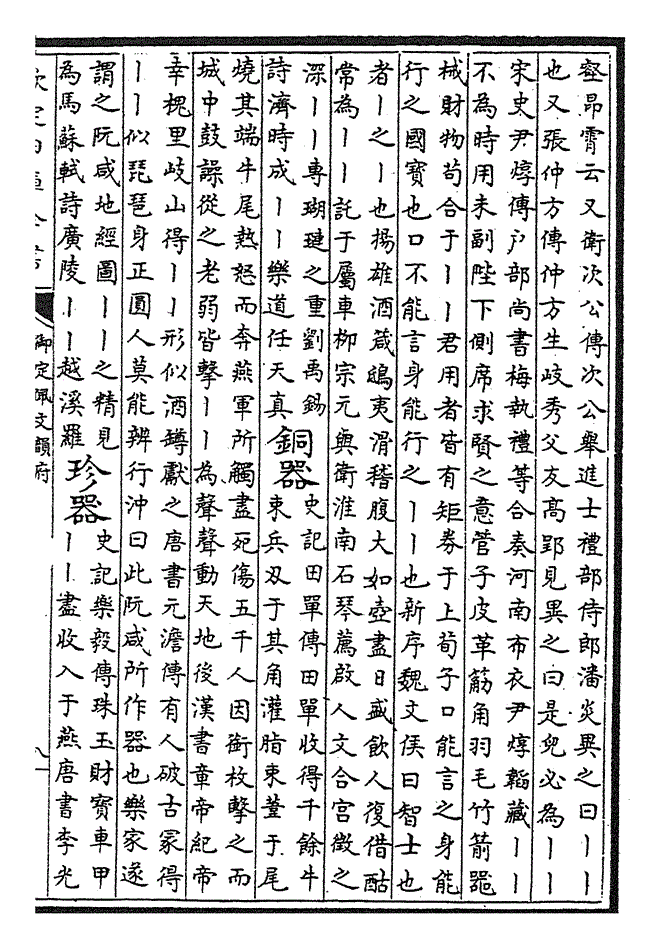 壑昂霄云又衛次公傳次公舉進士禮部侍郎潘炎異之曰丨丨
也又張仲方傳仲方生岐秀父友高郢見異之曰是兒必為丨丨
宋史尹焞傳戶部尚書梅執禮等合奏河南布衣尹焞韜藏丨丨
不為時用未副陛下側席求賢之意管子皮革筋角羽毛竹箭器
械財物苟合于丨丨君用者皆有矩券于上荀子口能言之身能
行之國寶也口不能言身能行之丨丨也新序魏文侯曰智士也
者丨之丨也揚雄酒箴鴟夷滑稽腹大如壺盡日盛飲人復借酤
常為丨丨託于屬車柳宗元與衛淮南石琴薦啟人文合宮徵之
深丨丨專瑚璉之重劉禹錫
詩濟時成丨丨樂道任天真
銅器
史記田單傳田單收得千餘牛
束兵刄于其角灌脂束葦于尾
燒其端牛尾熱怒而奔燕軍所觸盡死傷五千人因銜枚擊之而
城中鼓譟從之老弱皆擊丨丨為聲聲動天地後漢書章帝紀帝
幸槐里岐山得丨丨形似酒罇獻之唐書元澹傳有人破古冢得
丨丨似琵琶身正圓人莫能辨行沖曰此阮咸所作器也樂家遂
謂之阮咸地經圖丨丨之精見
為馬蘇軾詩廣陵丨丨越溪羅
珍器
史記樂毅傳珠玉財寶車甲
丨丨盡收入于燕唐書李光
御定佩文韻府